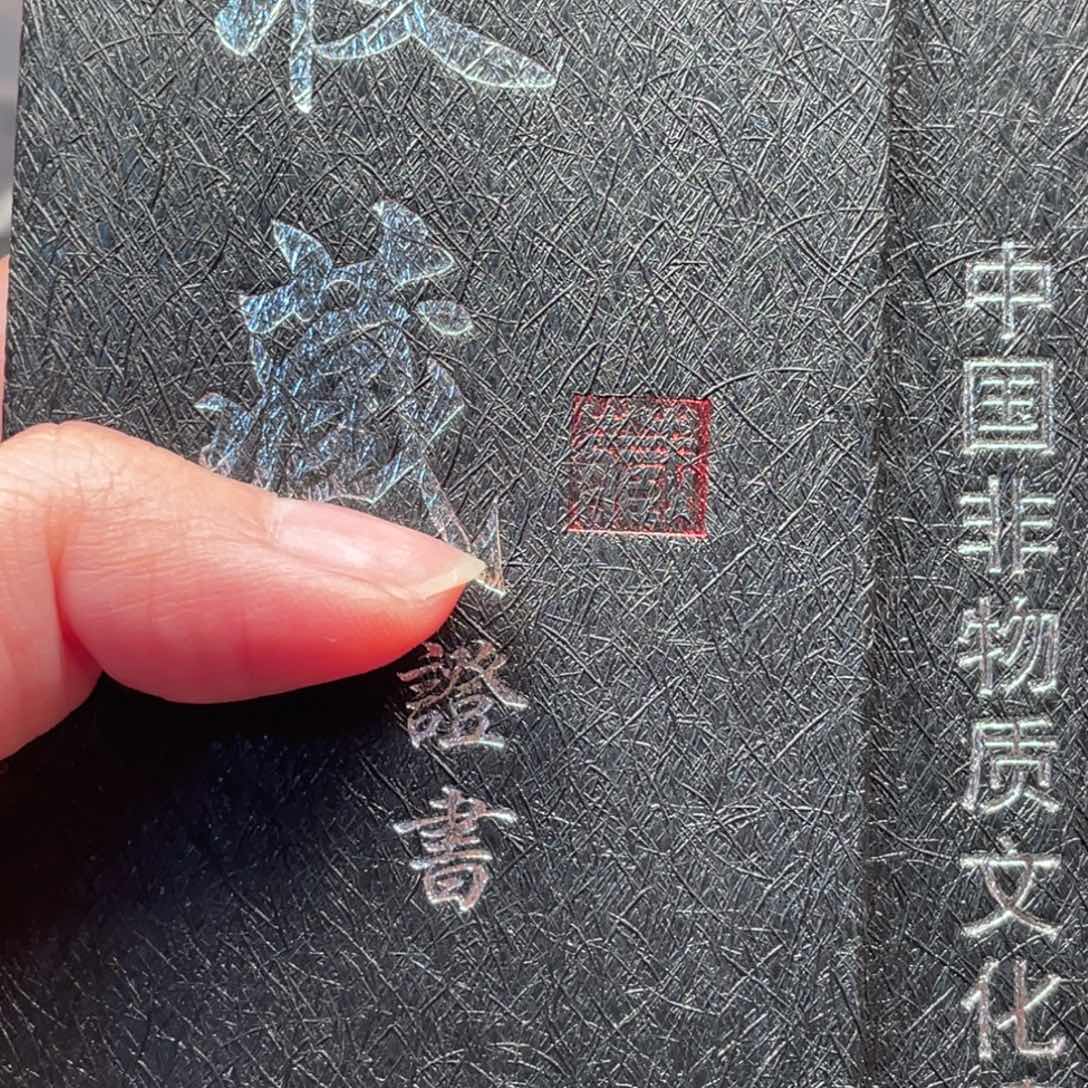 中国非物质文化
藏
證書